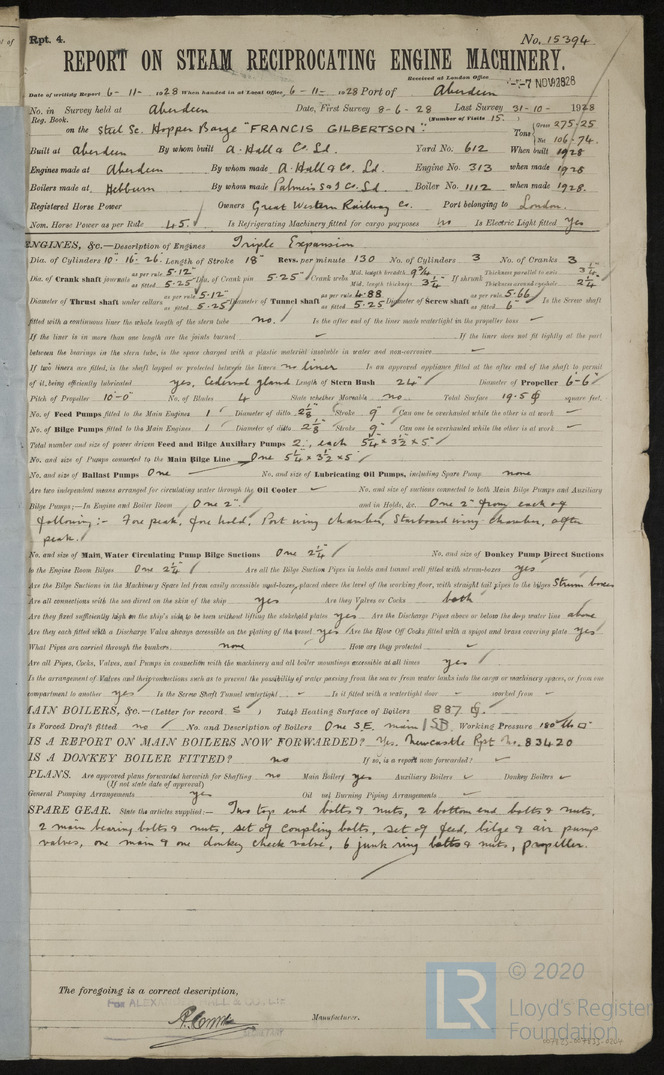 Rpt. 4. No. 15394
REPORT ON STEAM RECIPROCATING ENGINE MACHINERY.
Received at London Office 7 NOV 1928
Date of writing Report 6-11-1928 When handed in at Local Office 6-11-1928 Port of Aberdeen
No. in Survey held at Aberdeen Date, First Survey 8-6-28 Last Survey 31-10-1928
Reg. Book. (Number of Visits 15.)
on the Steel Sc. Hopper Barge "FRANCIS GILBERTSON". Tons Gross 275.25 Net 106.74.
Built at Aberdeen By whom built A. Hall & Co. Ld. Yard No. 612 When built 1928
Engines made at Aberdeen By whom made A. Hall & Co. Ld. Engine No. 313 when made 1928
Boilers made at Hebburn By whom made Palmers S & I Co. Ld. Boiler No. 1112 when made 1928.
Registered Horse Power Owners Great Western Railway Co. Port belonging to London.
Nom. Horse Power as per Rule 45. Is Refrigerating Machinery fitted for cargo purposes no Is Electric Light fitted yes
ENGINES, &c.—Description of Engines Triple Expansion
Dia. of Cylinders 10" 16" 26" Length of Stroke 18" Revs. per minute 130 No. of Cylinders 3 No. of Cranks 3
Dia. of Crank shaft journals as per rule 5.12" as fitted 5.25" Dia. of Crank pin 5.25" Crank webs Mid. length breadth 9¾ Mid. length thickness 3¼" If shrunk Thickness parallel to axis 3¼" Thickness around eyehole 2¼"
Diameter of Thrust shaft under collars as per rule 5.12" as fitted 5.25" Diameter of Tunnel shaft as per rule 4.88 as fitted 5.25 Diameter of Screw shaft as per rule 5.66 as fitted 6" Is the Screw shaft
fitted with a continuous liner the whole length of the stern tube no. Is the after end of the liner made watertight in the propeller boss ✓
If the liner is in more than one length are the joints burned ✓ If the liner does not fit tightly at the part
between the bearings in the stern tube, is the space charged with a plastic material insoluble in water and non-corrosive ✓
If two liners are fitted, is the shaft lapped or protected between the liners no liner Is an approved appliance fitted at the after end of the shaft to permit
of it being efficiently lubricated yes, Cedervall gland Length of Stern Bush 24" Diameter of Propeller 6'-6"
Pitch of Propeller 10'-0" No. of Blades 4 State whether Moveable no. Total Surface 19.5 square feet.
No. of Feed Pumps fitted to the Main Engines 1 Diameter of ditto 2⅛" Stroke 9" Can one be overhauled while the other is at work —
No. of Bilge Pumps fitted to the Main Engines 1 Diameter of ditto 2⅛" Stroke 9" Can one be overhauled while the other is at work —
Total number and size of power driven Feed and Bilge Auxiliary Pumps 2, each 5¼" x 3½" x 5"
No. and size of Pumps connected to the Main Bilge Line One 5¼" x 3½" x 5"
No. and size of Ballast Pumps One No. and size of Lubricating Oil Pumps, including Spare Pump none
Are two independent means arranged for circulating water through the Oil Cooler ✓ No. and size of suctions connected to both Main Bilge Pumps and Auxiliary
Bilge Pumps;—In Engine and Boiler Room One 2" and in Holds, &c. One 2" from each of
following:- Fore peak, fore hold, Port wing chamber, Starboard wing chamber, after
peak.
No. and size of Main Water Circulating Pump Bilge Suctions One 2¼" No. and size of Donkey Pump Direct Suctions
to the Engine Room Bilges One 2¼" Are all the Bilge Suction Pipes in holds and tunnel well fitted with strum-boxes yes
Are the Bilge Suctions in the Machinery Space led from easily accessible mud-boxes, placed above the level of the working floor, with straight tail pipes to the bilges Strum boxes
Are all connections with the sea direct on the skin of the ship yes Are they Valves or Cocks both
Are they fixed sufficiently high on the ship's side to be seen without lifting the stokehold plates yes Are the Discharge Pipes above or below the deep water line above
Are they each fitted with a Discharge Valve always accessible on the plating of the vessel yes Are the Blow Off Cocks fitted with a spigot and brass covering plate yes
What Pipes are carried through the bunkers none How are they protected ✓
Are all Pipes, Cocks, Valves, and Pumps in connection with the machinery and all boiler mountings accessible at all times yes
Is the arrangement of Valves and their connections such as to prevent the possibility of water passing from the sea or from water tanks into the cargo or machinery spaces, or from one
compartment to another yes Is the Screw Shaft Tunnel watertight ✓ Is it fitted with a watertight door ✓ worked from ✓
MAIN BOILERS, &c.—(Letter for record S) Total Heating Surface of Boilers 887
Is Forced Draft fitted no No. and Description of Boilers One S.E. main 1SB Working Pressure 180 lb
IS A REPORT ON MAIN BOILERS NOW FORWARDED? Yes. Newcastle Rpt No. 83420
IS A DONKEY BOILER FITTED? no If so, is a report now forwarded? ✓
PLANS. Are approved plans forwarded herewith for Shafting no Main Boilers yes Auxiliary Boilers ✓ Donkey Boilers ✓
(If not state date of approval)
General Pumping Arrangements yes Oil fuel Burning Piping Arrangements ✓
SPARE GEAR. State the articles supplied:— Two top end bolts & nuts, 2 bottom end bolts & nuts.
2 main bearing bolts & nuts, set of coupling bolts, set of feed, bilge & air pump
valves, one main & one donkey check valve, 6 junk ring bolts & nuts, propeller.
The foregoing is a correct description,
FOR ALEXANDER HALL & CO. LTD
Manufacturer.
SECRETARY
© 2020
LR Lloyd's Register
Foundation
007833-007853-0204